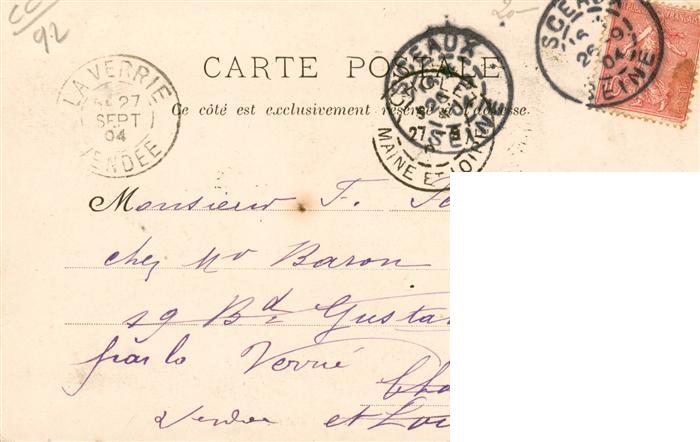 92
20-
SCEAUX
26
04
SEINE
CARTE POSTALE
Ce côté est exclusivement réservé à l'adresse.
LA VERRIE
27
SEPT
04
VENDÉE
SCEAUX
SEINE
27
MAINE ET LOIRE
Monsieur F.
chez Mr Baron
19 Bd Gusta
par la Verrie
Vendée et Loi